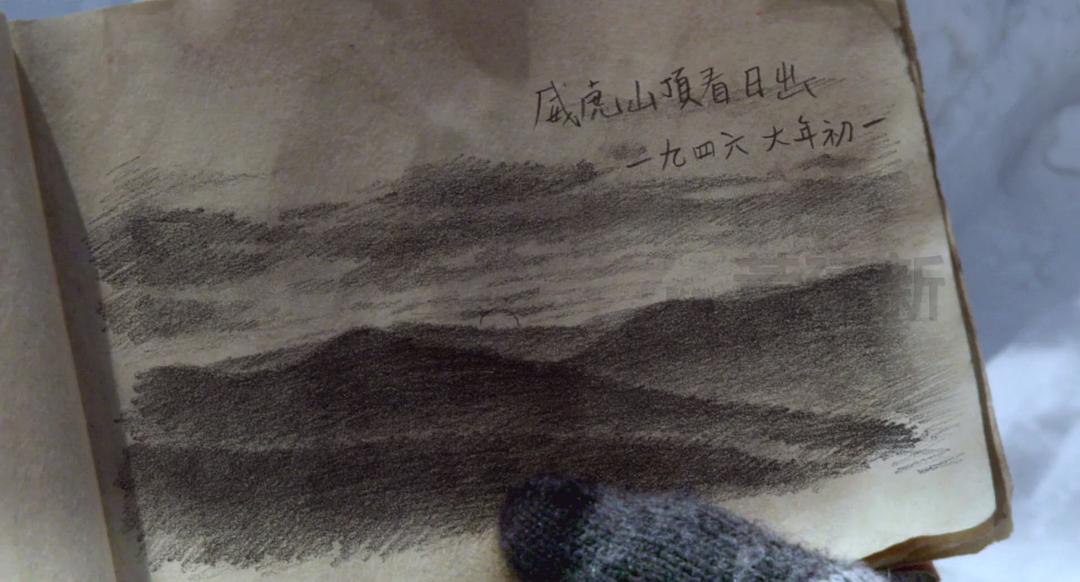 威虎山頂看日出
一九四六 大年初一